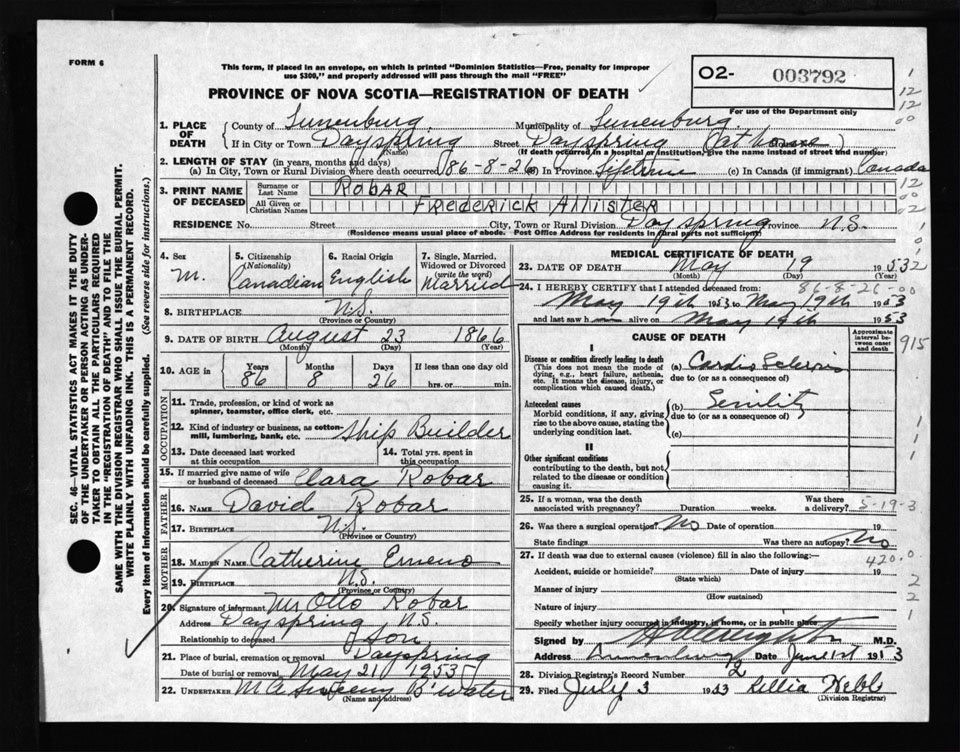 FORM 6
This form, if placed in an envelope, on which is printed "Dominion Statistics—Free, penalty for improper
use $300," and properly addressed will pass through the mail "FREE"
PROVINCE OF NOVA SCOTIA—REGISTRATION OF DEATH
O2- 003792
For use of the Department only
SEC. 46—VITAL STATISTICS ACT MAKES IT THE DUTY
OF THE UNDERTAKER OR PERSON ACTING AS UNDER-
TAKER TO OBTAIN ALL THE PARTICULARS REQUIRED
IN THE "REGISTRATION OF DEATH" AND TO FILE THE
SAME WITH THE DIVISION REGISTRAR WHO SHALL ISSUE THE BURIAL PERMIT.
WRITE PLAINLY WITH UNFADING INK. THIS IS A PERMANENT RECORD.
Every item of information should be carefully supplied. (See reverse side for instructions.)
1. PLACE OF DEATH
County of Lunenburg Municipality of Lunenburg
If in City or Town Dayspring Street Dayspring (at home)
(Name) (If death occurred in a hospital or institution, give the name instead of street and number)
2. LENGTH OF STAY (in years, months and days)
(a) In City, Town or Rural Division where death occurred 86-8-26 (b) In Province Lifetime (c) In Canada (if immigrant) Canada
3. PRINT NAME OF DECEASED
Surname or Last Name ROBAR
All Given or Christian Names FREDERICK Allister
RESIDENCE No. Street City, Town or Rural Division Dayspring Province N.S.
(Residence means usual place of abode. Post Office Address for residents in rural parts not sufficient)
4. Sex M.
5. Citizenship (Nationality) Canadian
6. Racial Origin English
7. Single, Married, Widowed or Divorced (write the word) Married
8. BIRTHPLACE N.S.
(Province or Country)
9. DATE OF BIRTH August 23 1866
(Month) (Day) (Year)
10. AGE Years 86 Months 8 Days 26 If less than one day old hrs. or min.
OCCUPATION
11. Trade, profession, or kind of work as spinner, teamster, office clerk, etc.
12. Kind of industry or business, as cotton-mill, lumbering, bank, etc. Ship Builder
13. Date deceased last worked at this occupation
14. Total yrs. spent in this occupation
15. If married give name of wife or husband of deceased Clara Robar
FATHER
16. NAME David Robar
17. BIRTHPLACE N.S.
(Province or Country)
MOTHER
18. MAIDEN NAME Catherine
19. BIRTHPLACE N.S.
(Province or Country)
20. Signature of informant Mr Otto Robar
Address Dayspring N.S.
Relationship to deceased Son
21. Place of burial, cremation or removal Dayspring
Date of burial or removal May 21 1953
22. UNDERTAKER M A Sweeny B'water
(Name and address)
MEDICAL CERTIFICATE OF DEATH
23. DATE OF DEATH May 19 1953
(Month) (Day) (Year)
24. I HEREBY CERTIFY that I attended deceased from: 86-8-26-00
May 19th 1953 to May 19th 1953
and last saw h alive on May 19th 1953
CAUSE OF DEATH
Approximate interval between onset and death
915
I
Disease or condition directly leading to death
(This does not mean the mode of dying, e.g., heart failure, asthenia, etc. It means the disease, injury, or complication which caused death.)
(a) Cardio Sclerosis
due to (or as a consequence of)
Antecedent causes
Morbid conditions, if any, giving rise to the above cause, stating the underlying condition last.
(b) Senility
due to (or as a consequence of)
(c)
II
Other significant conditions
contributing to the death, but not related to the disease or condition causing it.
25. If a woman, was the death associated with pregnancy? Duration weeks. Was there a delivery? 5-19-3
26. Was there a surgical operation? No Date of operation 19
State findings Was there an autopsy? No
27. If death was due to external causes (violence) fill in also the following:— 420.0
Accident, suicide or homicide? Date of injury 19
(State which)
Manner of injury
(How sustained)
Nature of injury
Specify whether injury occurred in industry, in home, or in public place
Signed by M.D.
Address Lunenburg Date June 1st 1953
28. Division Registrar's Record Number 72
29. Filed July 3 1953 Rellia Webb
(Division Registrar)